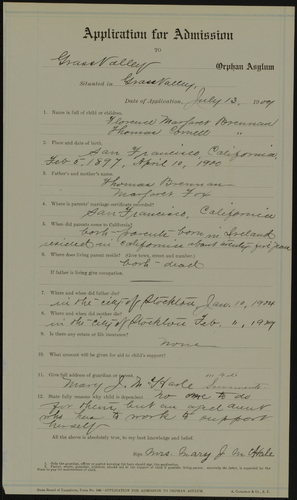 Application for Admission
TO
Grass Valley Orphan Asylum
Situated in Grass Valley,
Date of Application, July 13, 1909
1. Name in full of child or children.
Florence Margaret Brennan
Thomas Cornell "
2. Place and date of birth.
San Francisco California
Feb 5, 1897, April 10, 1900
3. Father's and mother's name.
Thomas Brennan
Margaret Fox
4. Where is parents' marriage certificate recorded?
San Francisco, California
5. When did parents come to California?
both parents born in Ireland
resided in California about
6. Where does living parent reside? (Give town, street and number.)
both dead
If father is living give occupation.
7. Where and when did father die?
in the city of Stockton Jan. 10, 1904
8. Where and when did mother die?
in the city of Stockton Feb. 11, 1909
9. Is there any estate or life insurance?
none
10. What amount will be given for aid to child's support?
11. Give full address of guardian or
Mary J. McHale
12. State fully reasons why child is dependent. no one to do
for them but an aged aunt
who has to work to support
herself
All the above is absolutely true, to my best knowledge and belief.
Sign Mrs. Mary J. McHale